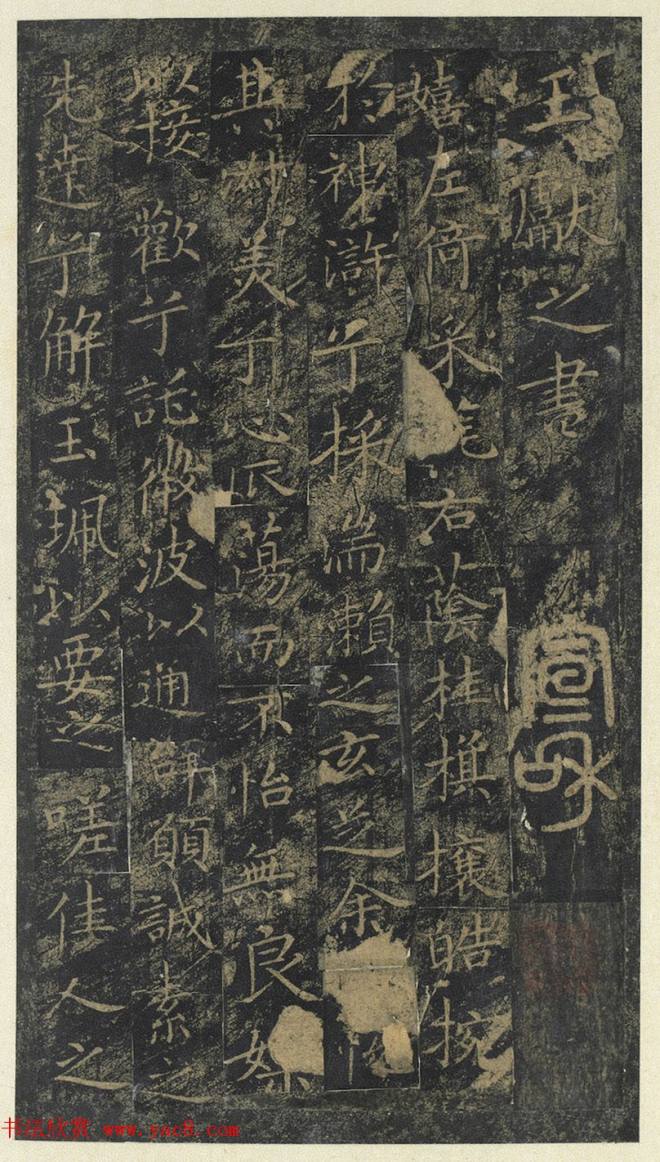 王獻之書 宣和
嬉左倚采旄右蔭桂旗攘皓捥
於神滸兮採湍瀨之玄芝余
其淑美兮心振蕩而不怡無良媒
以接歡兮託微波以通辭願誠素之
先達兮解玉珮以要之嗟佳人之
书法欣赏 www.yac8.com